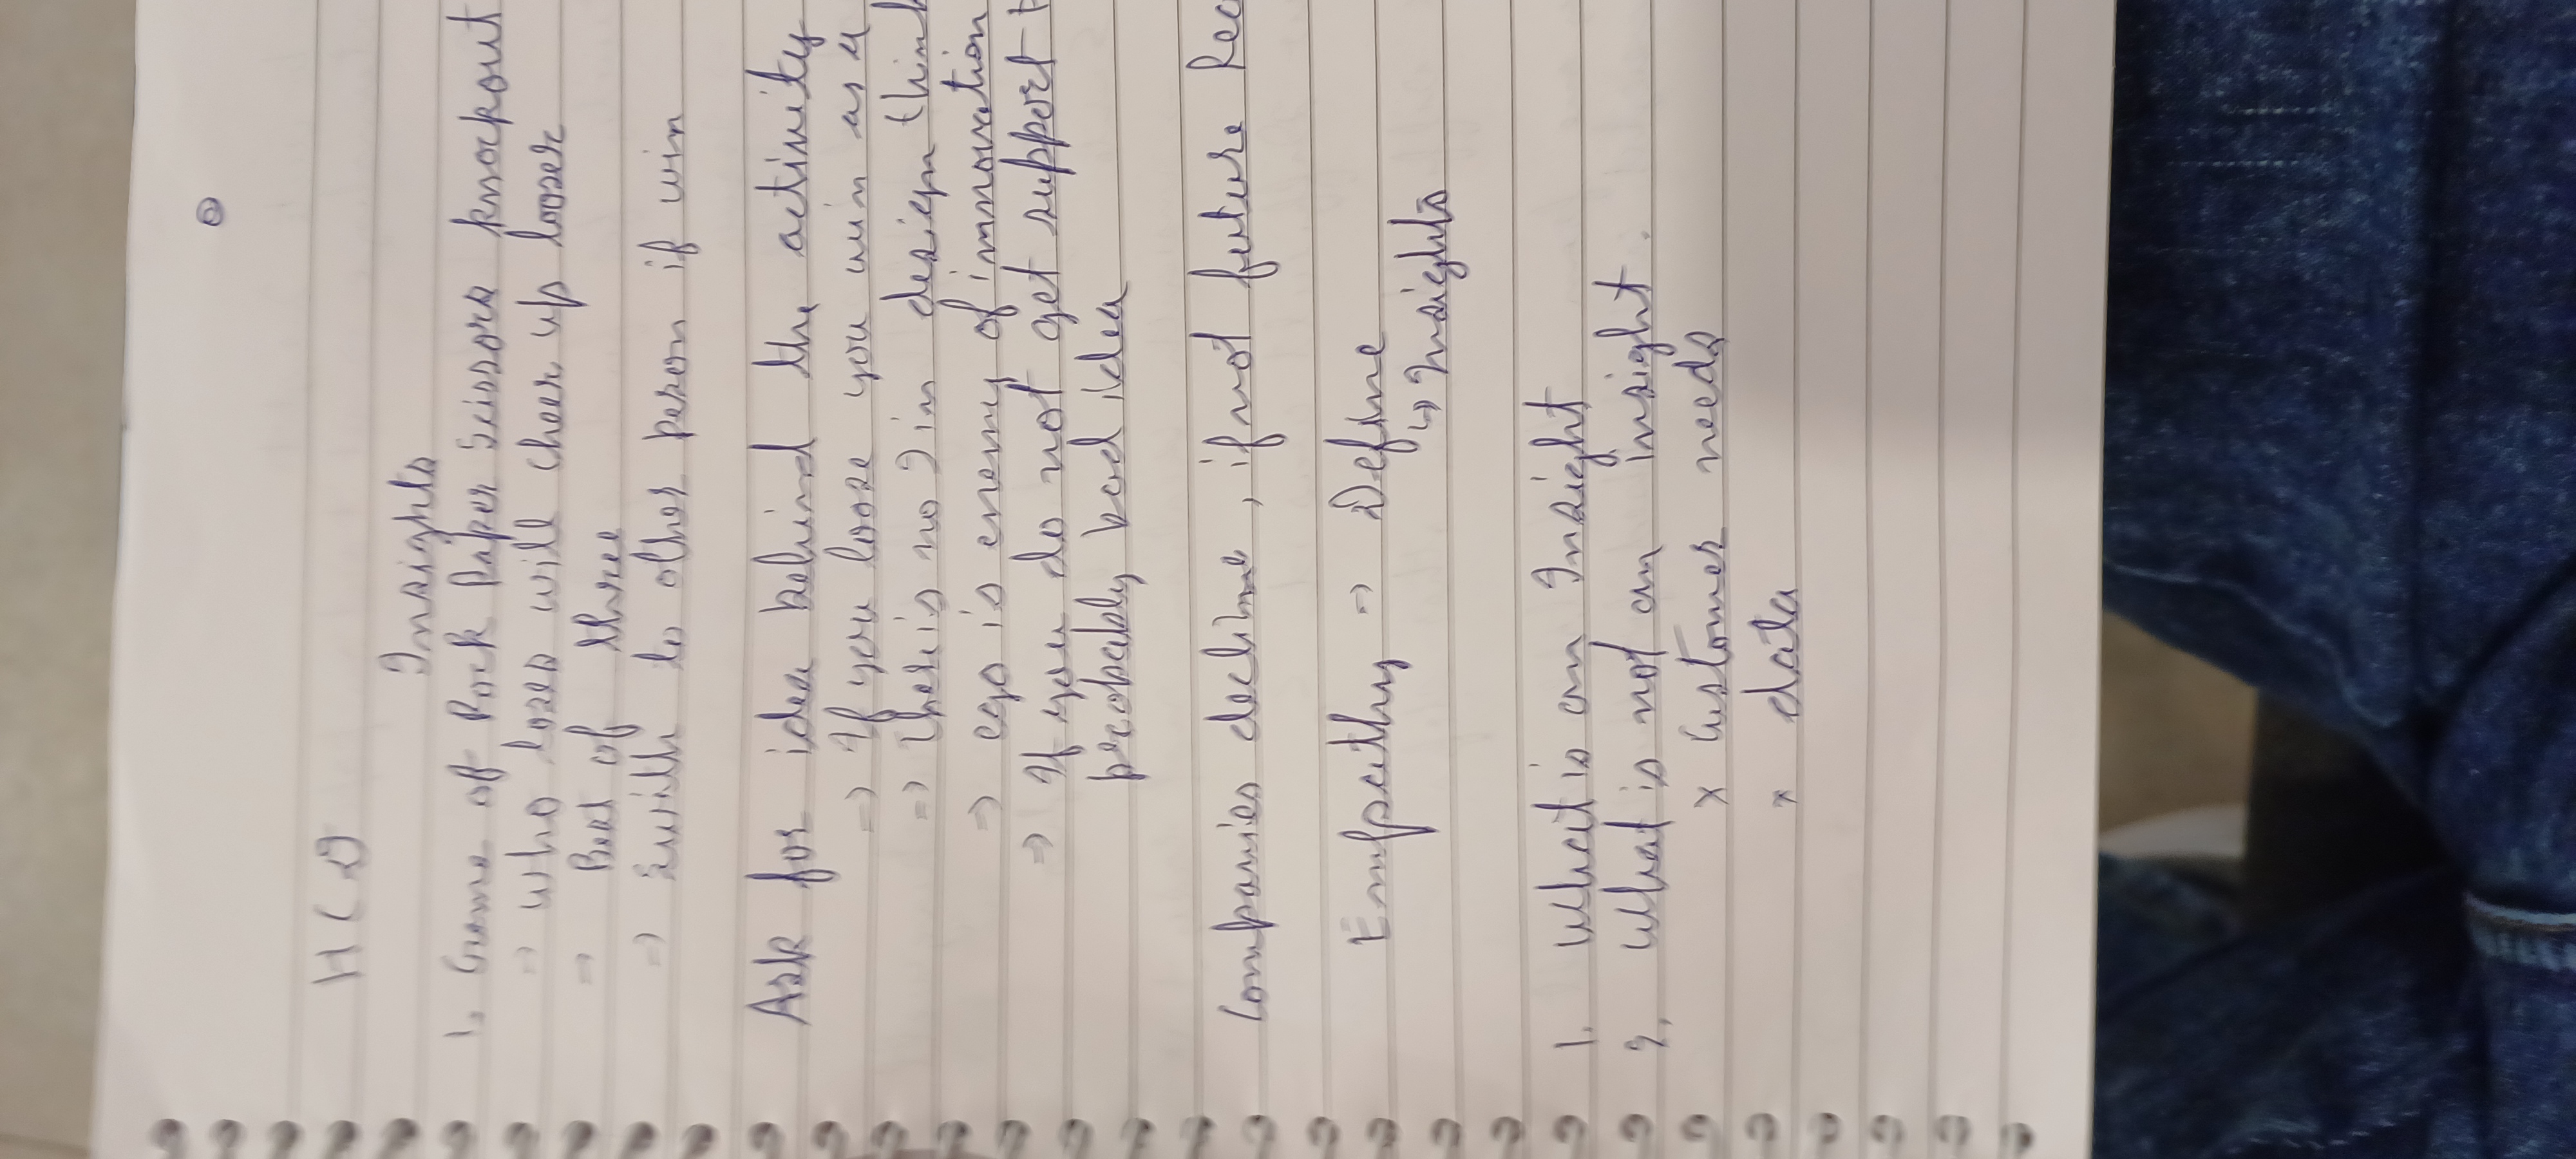 HCD
Insights
1. Game of Rock Paper Scissors knockout
⇒ who loses will cheer up looser
⇒ Best of three
⇒ Swith to other person if win
Ask for idea behind the activity
⇒ If you loose you win as a
⇒ There is no I in design think
⇒ ego is enemy of innovation
⇒ If you do not get support
probably bad idea
Companies decline, if not future
Empathy ⇒ Define
↳ Insights
1. What is an Insight
2. What is not an insight.
x Customer needs
x data